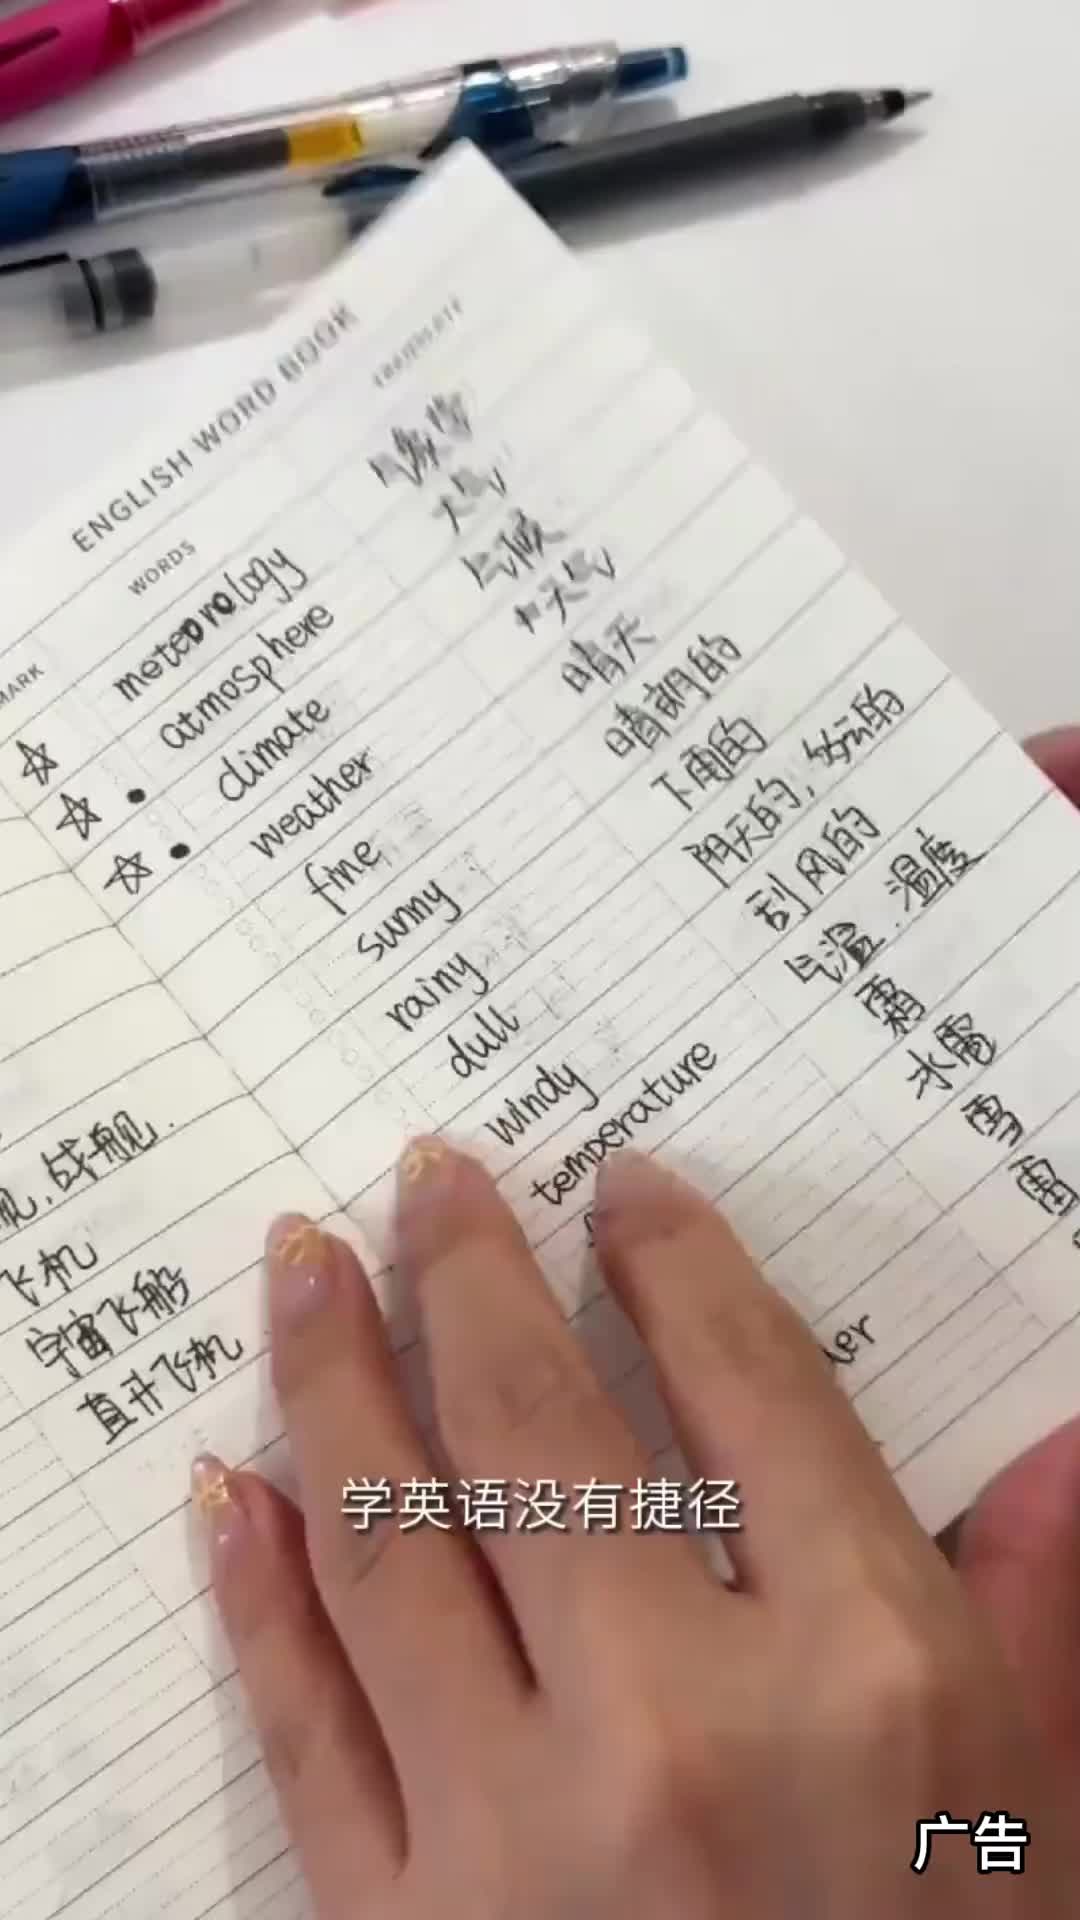 ENGLISH WORD BOOK
MARK
WORDS
TRANSLATE
meteorology
atmosphere
climate
weather
fine
sunny
rainy
dull
windy
temperature
大气
气候
天气
晴天
晴朗的
下雨的
阴天的,多云的
刮风的
气温.温度
霜
冰雹
雪
战舰.
飞机
宇宙飞船
直升飞机
学英语没有捷径
广告